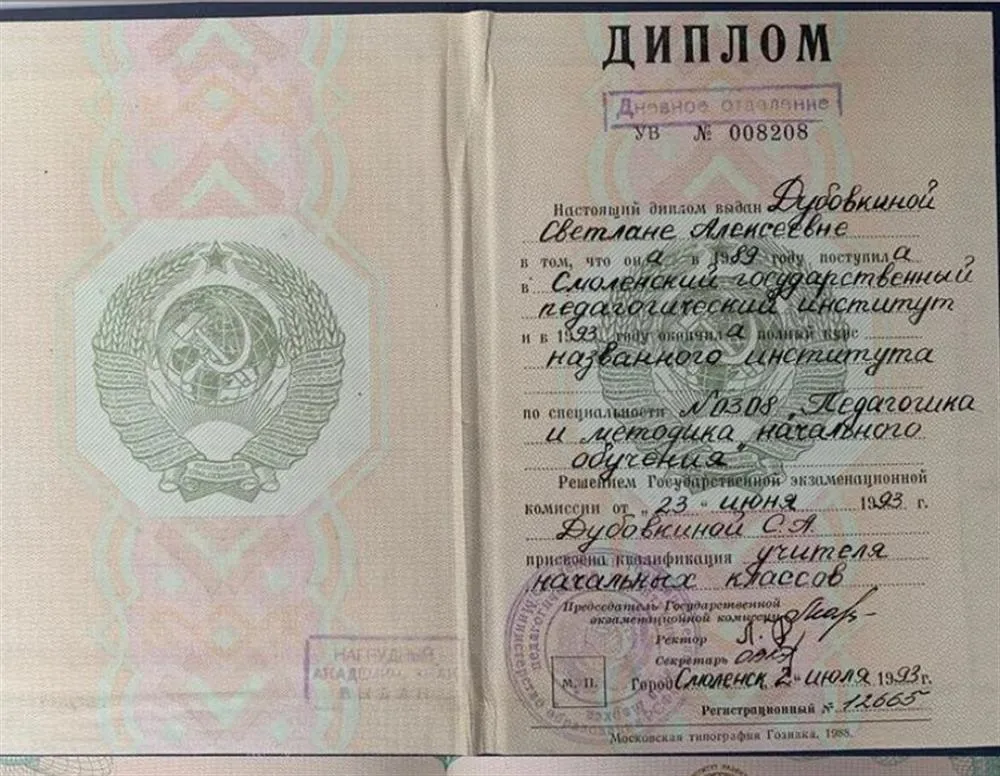 ДИПЛОМ
Дневное отделение
УВ № 008208
Настоящий диплом выдан Дубовкиной
Светлане Алексеевне
в том, что она в 1989 году поступила
в Смоленский государственный
педагогический институт
и в 1993 году окончила полный курс
названного института
по специальности №0308 „Педагогика
и методика начального
обучения"
Решением Государственной экзаменационной
комиссии от „23" июня 1993 г.
Дубовкиной С.А.
присвоена квалификация учителя
начальных классов
Председатель Государственной
экзаменационной комиссии
Ректор
Секретарь
М. П.
Город Смоленск „2" июля 1993 г.
Регистрационный № 12665
Московская типография Гознака. 1988.